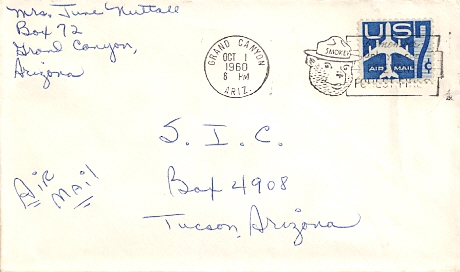 Mrs. June Nuttall
Box 72
Grand Canyon,
Arizona
GRAND CANYON
OCT 1
1960
6 PM
ARIZ.
SMOKEY
US
7
¢
AIR MAIL
FOREST FIRES
S. I. C.
Box 4908
Tucson, Arizona
Air
Mail